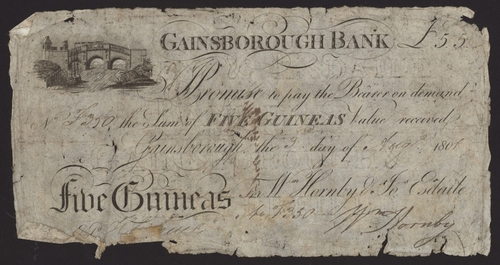 GAINSBOROUGH BANK £5 5
I Promise to pay the Bearer on demand
No F250 the Sum of FIVE GUINEAS Value received
Gainsborough the 3 day of 1801
Five Guineas For Wm Hornby & Jos Esdaile
No F250 Wm Hornby